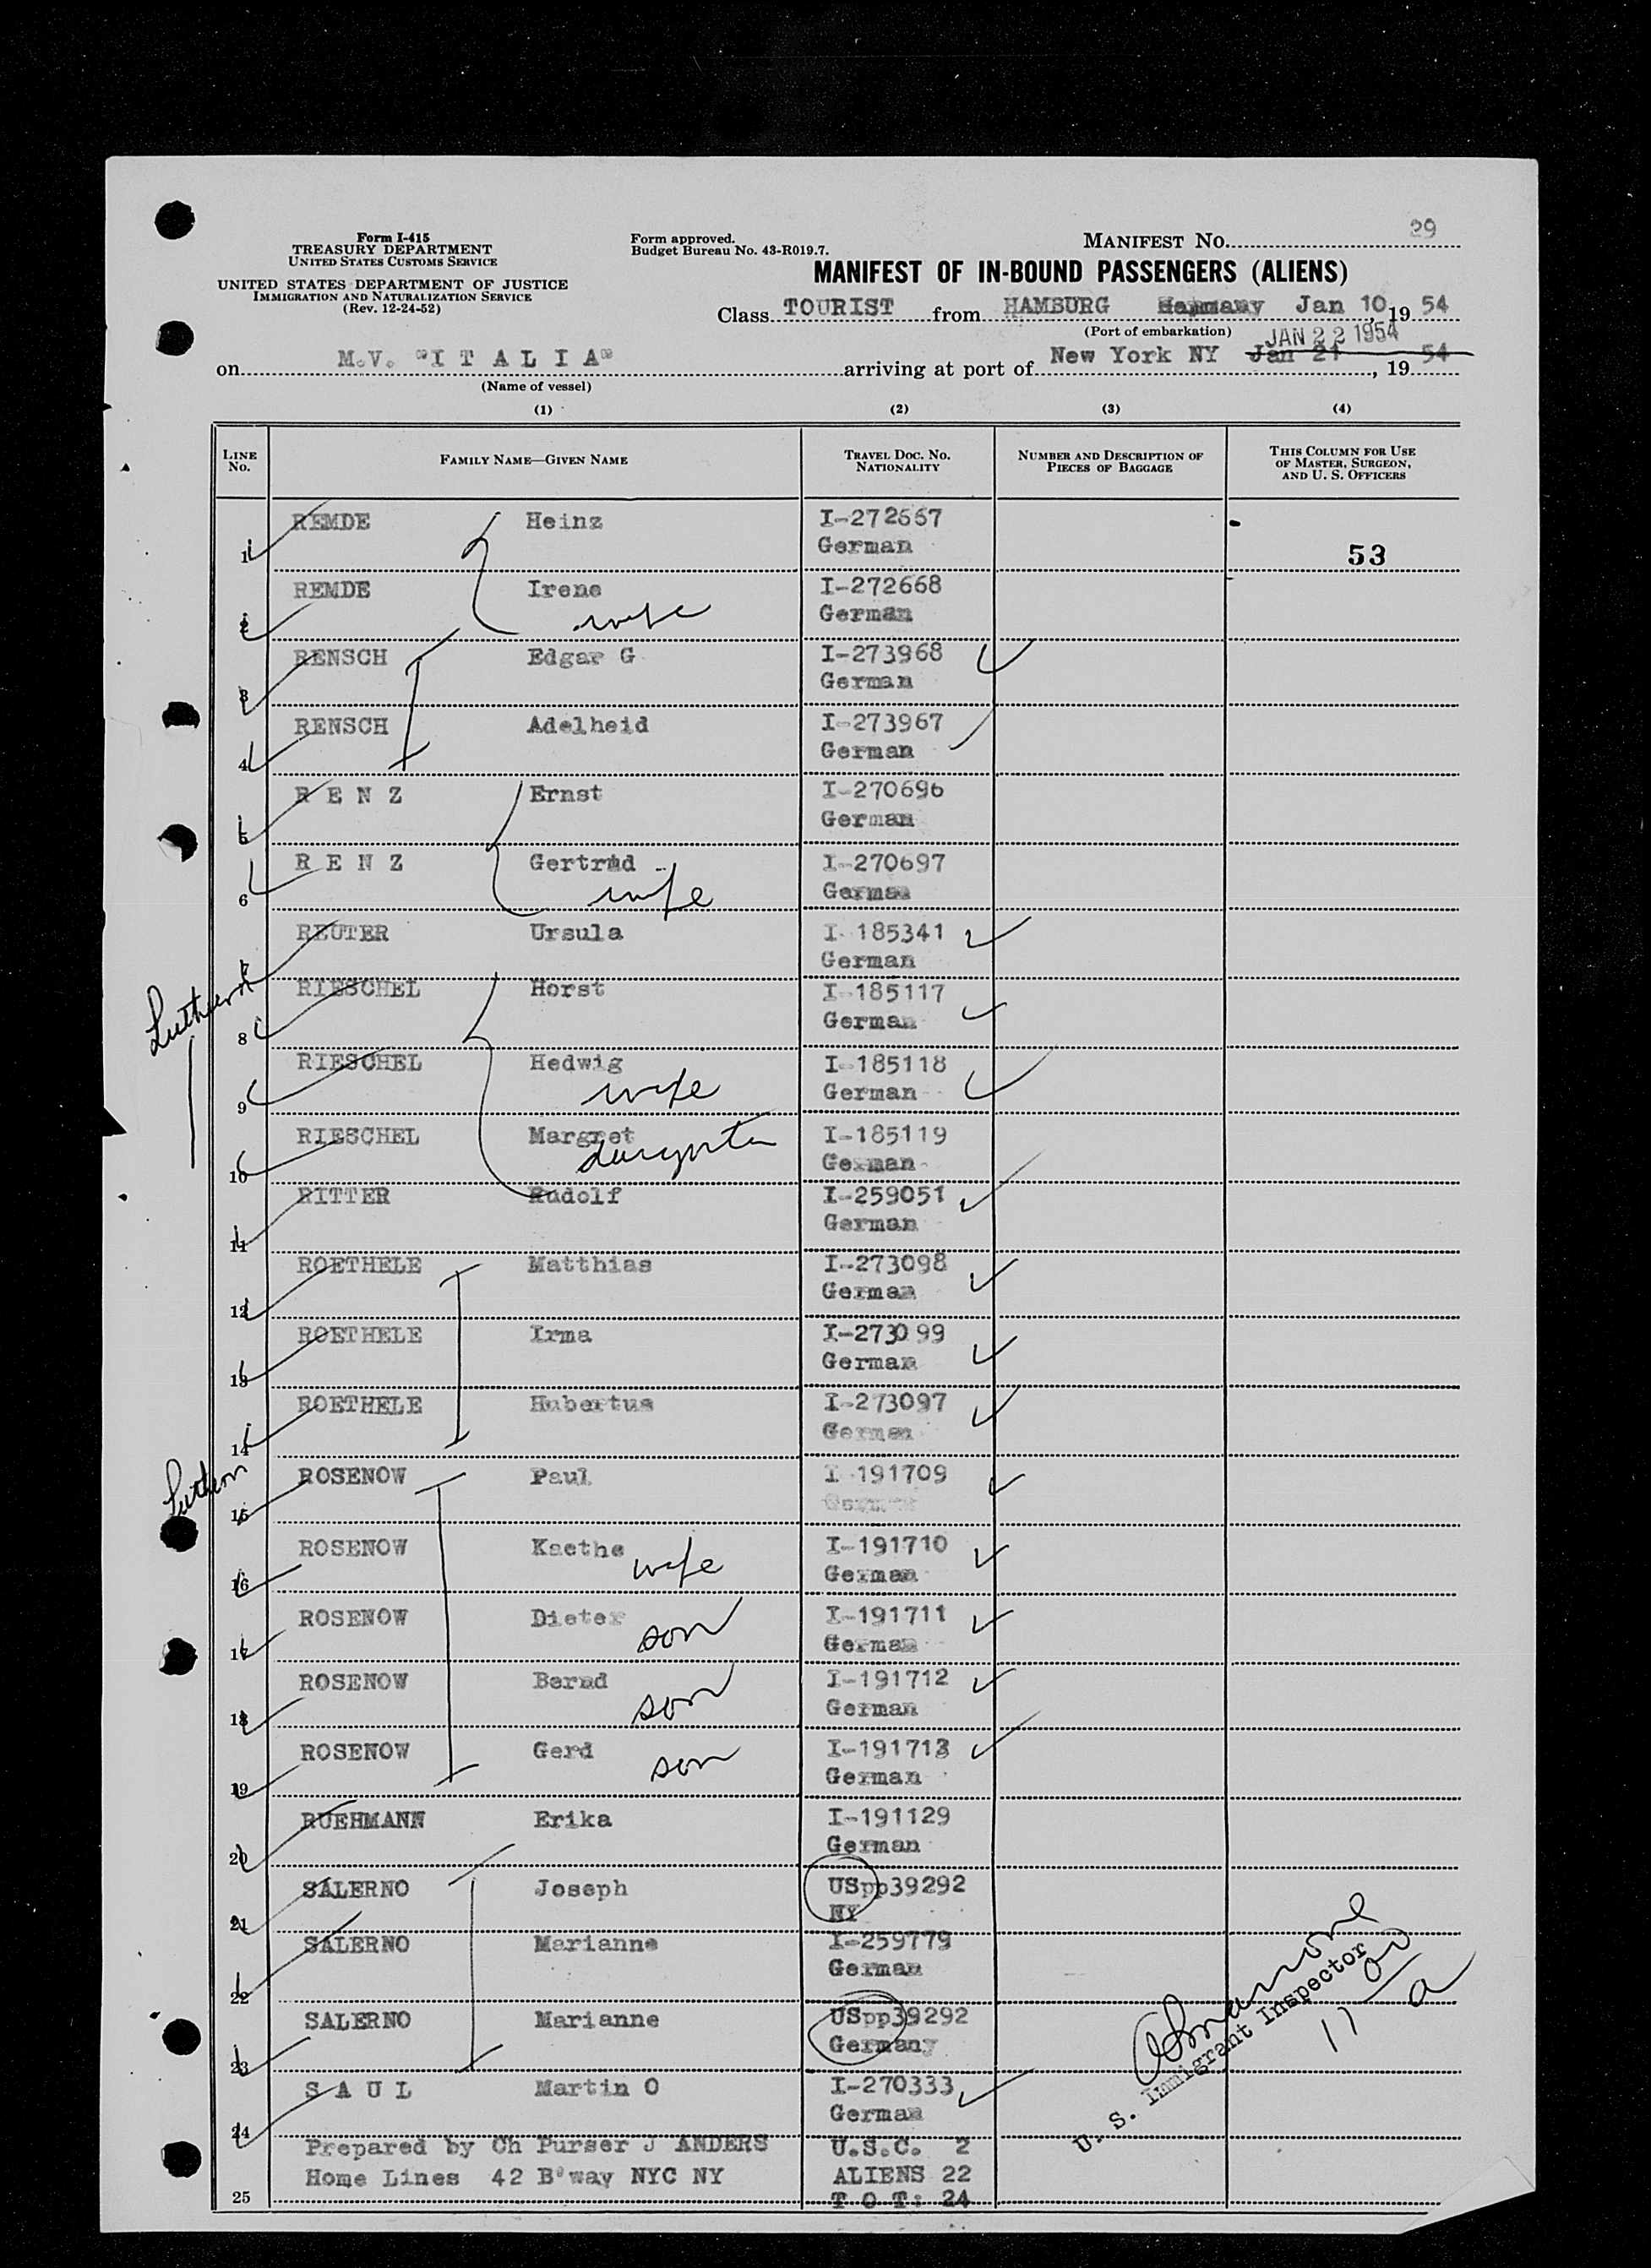 Form I-415
TREASURY DEPARTMENT
UNITED STATES CUSTOMS SERVICE
UNITED STATES DEPARTMENT OF JUSTICE
IMMIGRATION AND NATURALIZATION SERVICE
(Rev. 12-24-52)
Form approved.
Budget Bureau No. 43-R019.7.
MANIFEST NO. 29
MANIFEST OF IN-BOUND PASSENGERS (ALIENS)
Class TOURIST from HAMBURG Germany Jan 10, 19 54
(Port of embarkation)
JAN 22 1954
on M.V. "I T A L I A" arriving at port of New York NY Jan 21, 19 54
(Name of vessel)
(1) (2) (3) (4)
LINE NO. FAMILY NAME—GIVEN NAME TRAVEL DOC. NO. NATIONALITY NUMBER AND DESCRIPTION OF PIECES OF BAGGAGE THIS COLUMN FOR USE OF MASTER, SURGEON, AND U. S. OFFICERS
REMDE Heinz I-272667
1 German 53
REMDE Irene I-272668
2 wife German
RENSCH Edgar G I-273968
3 German
RENSCH Adelheid I-273967
4 German
R E N Z Ernst I-270696
5 German
R E N Z Gertrud I-270697
6 wife German
REUTER Ursula I-185341
7 German
Lutheran
RIESCHEL Horst I-185117
8 German
RIESCHEL Hedwig I-185118
9 wife German
RIESCHEL Margret I-185119
10 daughter German
RITTER Rudolf I-259051
11 German
ROETHELE Matthias I-273098
12 German
ROETHELE Irma I-273099
13 German
ROETHELE Hubertus I-273097
14 German
Luthern
ROSENOW Paul I-191709
15 German
ROSENOW Kaethe wife I-191710
16 German
ROSENOW Dieter son I-191711
17 German
ROSENOW Bernd son I-191712
18 German
ROSENOW Gerd son I-191713
19 German
RUEHMANN Erika I-191129
20 German
SALERNO Joseph USpp39292
21 NY
SALERNO Marianne I-259779
22 German
SALERNO Marianne USpp39292
23 Germany
S A U L Martin O I-270333
24 German
U. S. Immigrant Inspector
Prepared by Ch Purser J ANDERS U.S.C. 2
Home Lines 42 B'way NYC NY ALIENS 22
25 T O T: 24